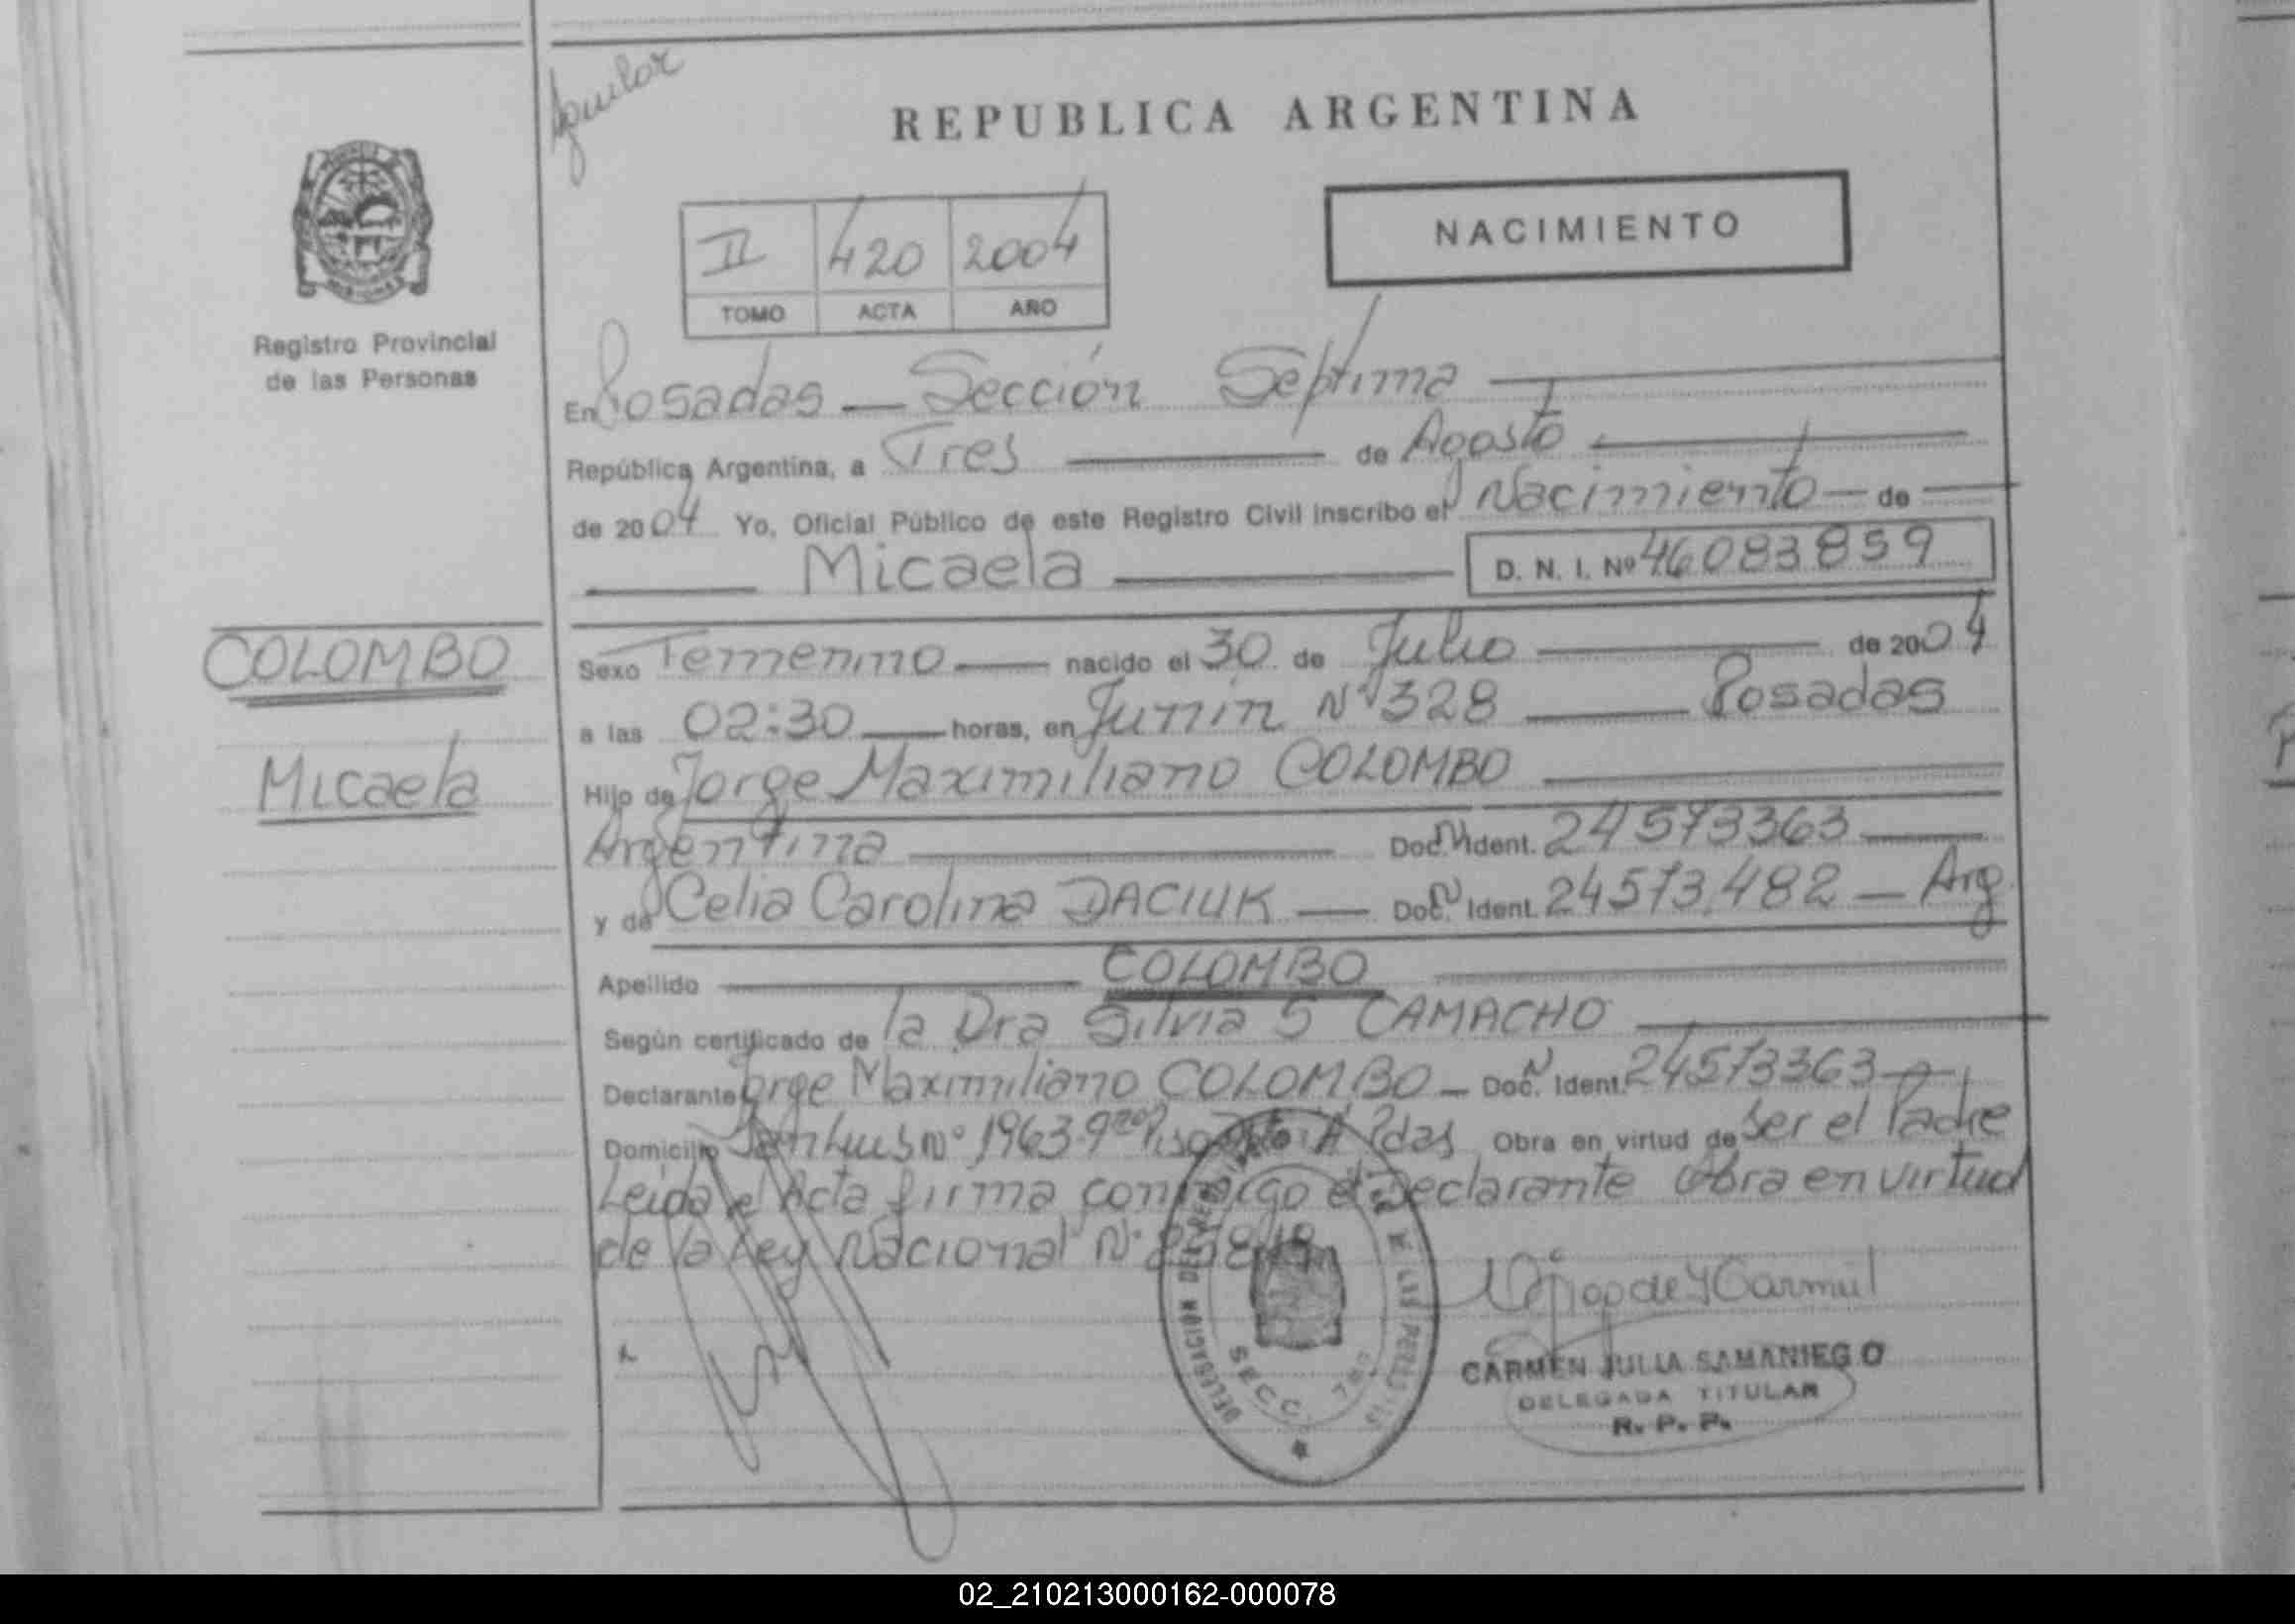 Aguilar
REPUBLICA ARGENTINA
NACIMIENTO
II 420 2004
TOMO ACTA AÑO
Registro Provincial
de las Personas
En Posadas — Sección Séptima
República Argentina, a Tres de Agosto
de 2004 Yo, Oficial Público de este Registro Civil inscribo el Nacimiento — de
Micaela D. N. I. Nº 46083859
COLOMBO
Micaela
Sexo Femenino nacido el 30 de Julio de 2004
a las 02:30 horas, en Junín Nº 328 Posadas
Hijo de Jorge Maximiliano COLOMBO
Argentina Doc. N Ident. 24573363
y de Celia Carolina DACIUK — Doc. N Ident. 24573.482 — Arg
Apellido COLOMBO
Según certificado de la Dra Silvia S CAMACHO
Declarante Jorge Maximiliano COLOMBO — Doc. N Ident. 24573363
Domicilio Nº 1963 Pdas Obra en virtud de Ser el Padre
Leida el Acta firma conmigo el Declarante Obra en virtud
de la Ley Nacional Nº
DELEGACION DEL REGISTRO DE LAS PERSONAS
SECC. 7ma
CARMEN JULIA SAMANIEGO
DELEGADA TITULAR
R. P. P.
02_210213000162-000078